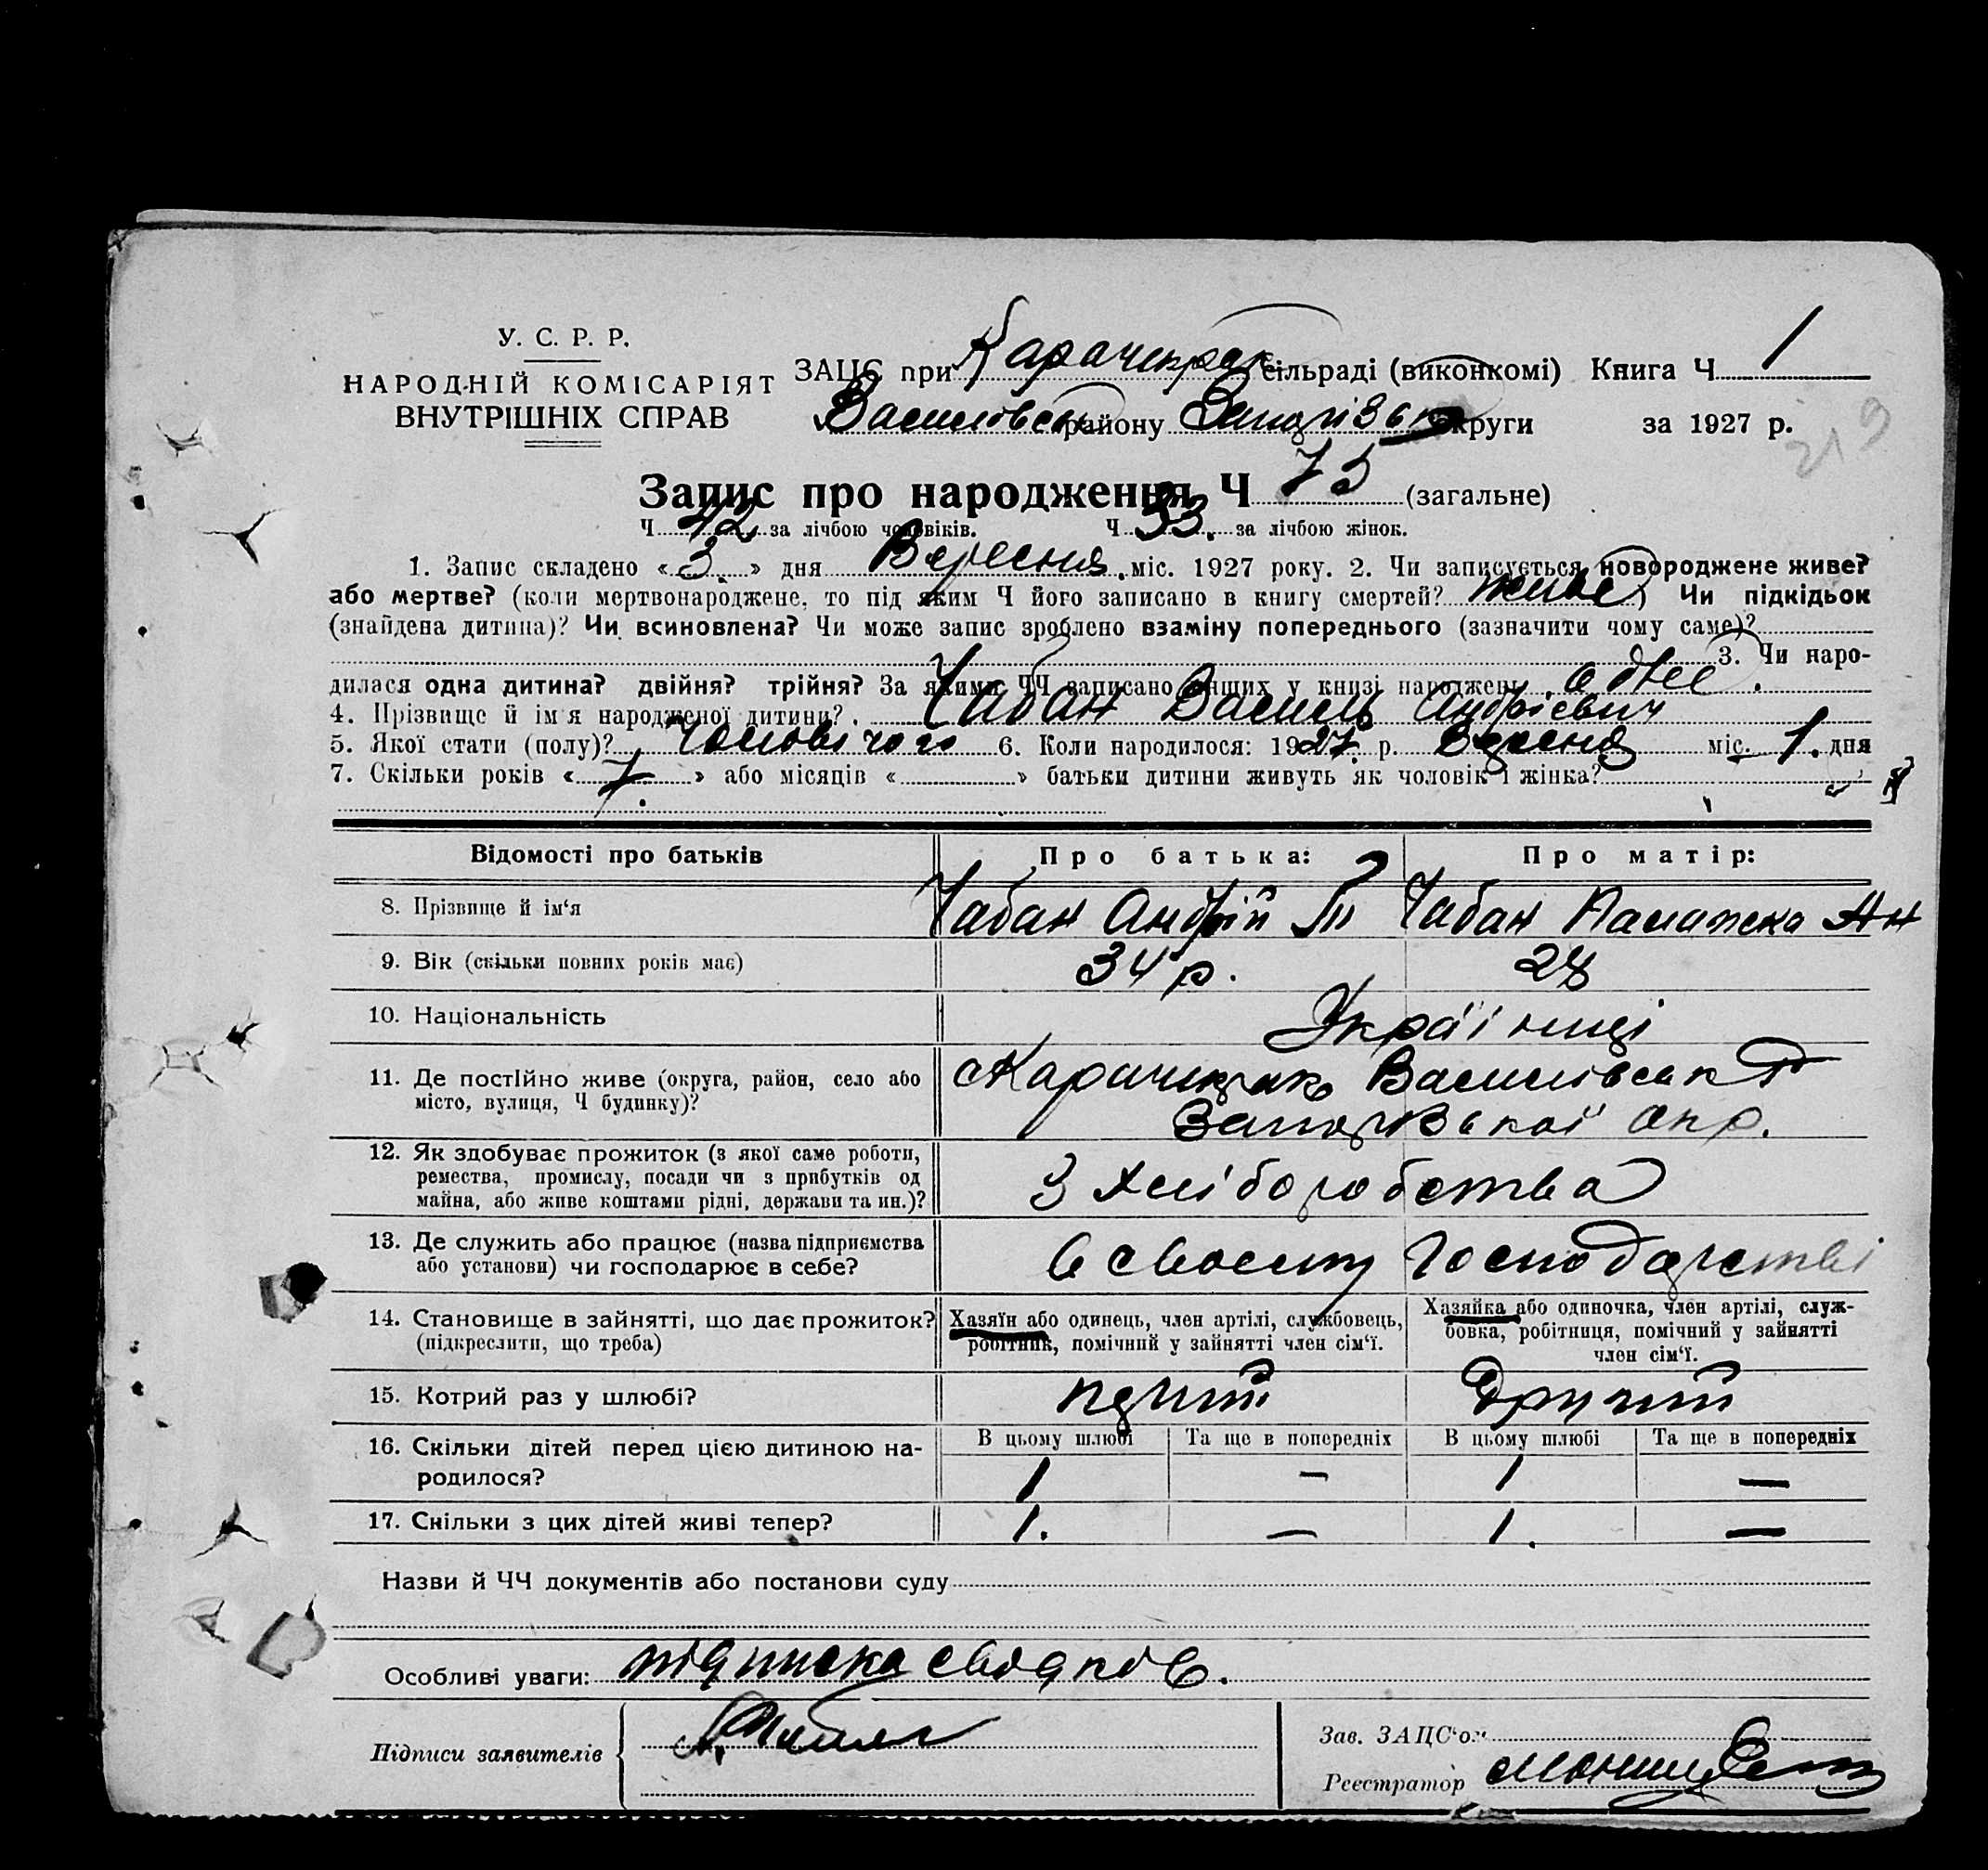 У. С. Р. Р.
НАРОДНІЙ КОМІСАРІЯТ
ВНУТРІШНІХ СПРАВ
ЗАЦС при Карачекрак сільраді (виконкомі) Книга Ч 1
Василівськ району Запорізьк округи за 1927 р.
219
Запис про народження Ч 75 (загальне)
Ч 42 за лічбою чоловіків. Ч 33. за лічбою жінок.
1. Запис складено «3.» дня Вересня. міс. 1927 року. 2. Чи записується новороджене живе?
або мертве? (коли мертвонароджене, то під яким Ч його записано в книгу смертей? живе) Чи підкідьок
(знайдена дитина)? Чи всиновлена? Чи може запис зроблено взаміну попереднього (зазначити чому саме)?
3. Чи наро-
дилася одна дитина? двійня? трійня? За якими ЧЧ записано инших у книзі народжень одне.
4. Прізвище й ім'я народженої дитини? Чабан Василь Андрієвич
5. Якої стати (полу)? Чоловічого 6. Коли народилося: 1927. р. Вересня міс. 1. дня
7. Скільки років «7.» або місяців « » батьки дитини живуть як чоловік і жінка?
Відомості про батьків Про батька: Про матір:
8. Прізвище й ім'я Чабан Андрій Чабан Палажка Ян
9. Вік (скільки повних років має) 34 р. 28
10. Національність Українці
11. Де постійно живе (округа, район, село або
місто, вулиця, Ч будинку)? Карачекрак Василівськ Р
Запорізької окр.
12. Як здобуває прожиток (з якої саме роботи,
ремества, промислу, посади чи з прибутків од
майна, або живе коштами рідні, держави та ин.)? З хліборобства
13. Де служить або працює (назва підприємства
або установи) чи господарює в себе? В своєму господарстві
14. Становище в зайнятті, що дає прожиток?
(підкреслити, що треба)
Хазяїн або одинець, член артілі, службовець,
робітник, помічний у зайнятті член сім'ї.
Хазяйка або одиночка, член артілі, служ-
бовка, робітниця, помічний у зайнятті
член сім'ї.
15. Котрий раз у шлюбі? перший Другий
16. Скільки дітей перед цією дитиною на-
родилося?
В цьому шлюбі Та ще в попередніх В цьому шлюбі Та ще в попередніх
1 — 1 —
17. Скільки з цих дітей живі тепер? 1. — 1. —
Назви й ЧЧ документів або постанови суду
Особливі уваги: підписка свідків.
Підписи заявителів
Зав. ЗАЦС'ом
Реєстратор